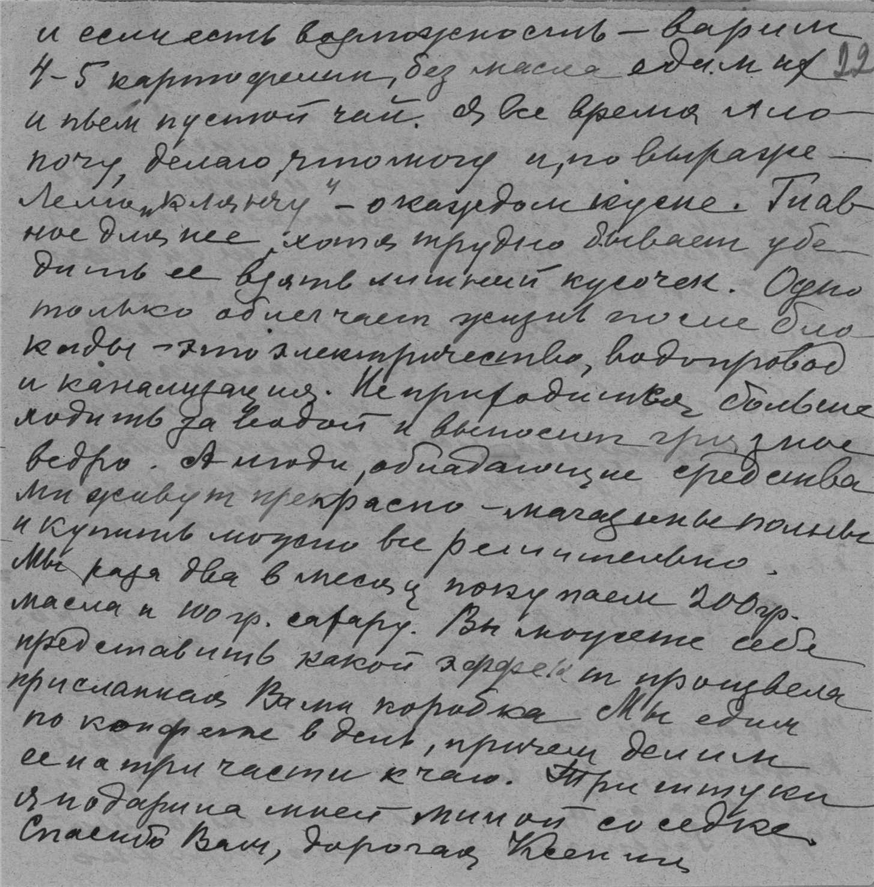 и если есть возможность – варим
4-5 картофелин, без масла едим их 22
и пьем пустой чай. Я все время хло-
почу, делаю, что могу и, по выраже-
лению „клянчу" – о каждом куске. Глав-
ное для нее, хотя трудно бывает убе-
дить ее взять лишний кусочек. Одно
только облегчает жизнь после бло-
кады – это электричество, водопровод
и канализация. Не приходится больше
ходить за водой и выносить грязное
ведро. А люди, обладающие средства-
ми живут прекрасно – магазины полны
и купить можно все решительно.
Мы раза два в месяц покупаем 200 гр.
масла и 100 гр. сахару. Вы можете себе
представить какой эффект произвела
присланная Вами коробка. Мы едим
по конфете в день, причем делим
ее на три части к чаю. Три штуки
я подарила моей милой соседке.
Спасибо Вам, дорогая Ксения